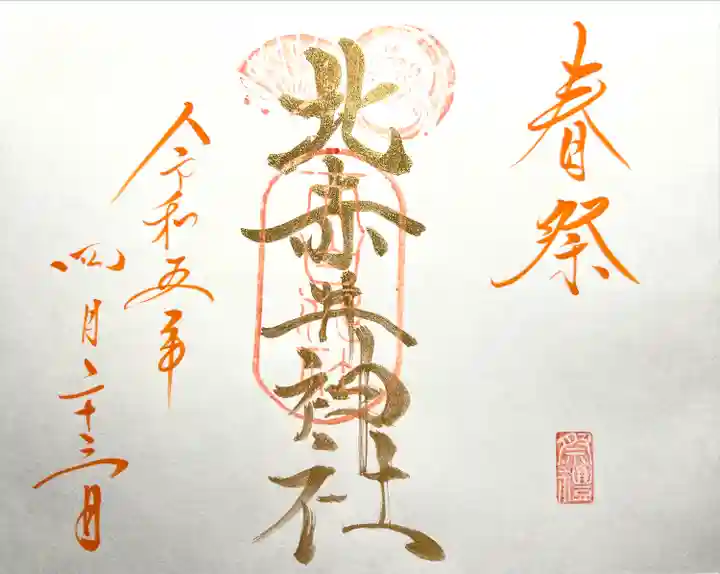 春祭
北赤井神社
令和五年
四月二十三日
祭禮